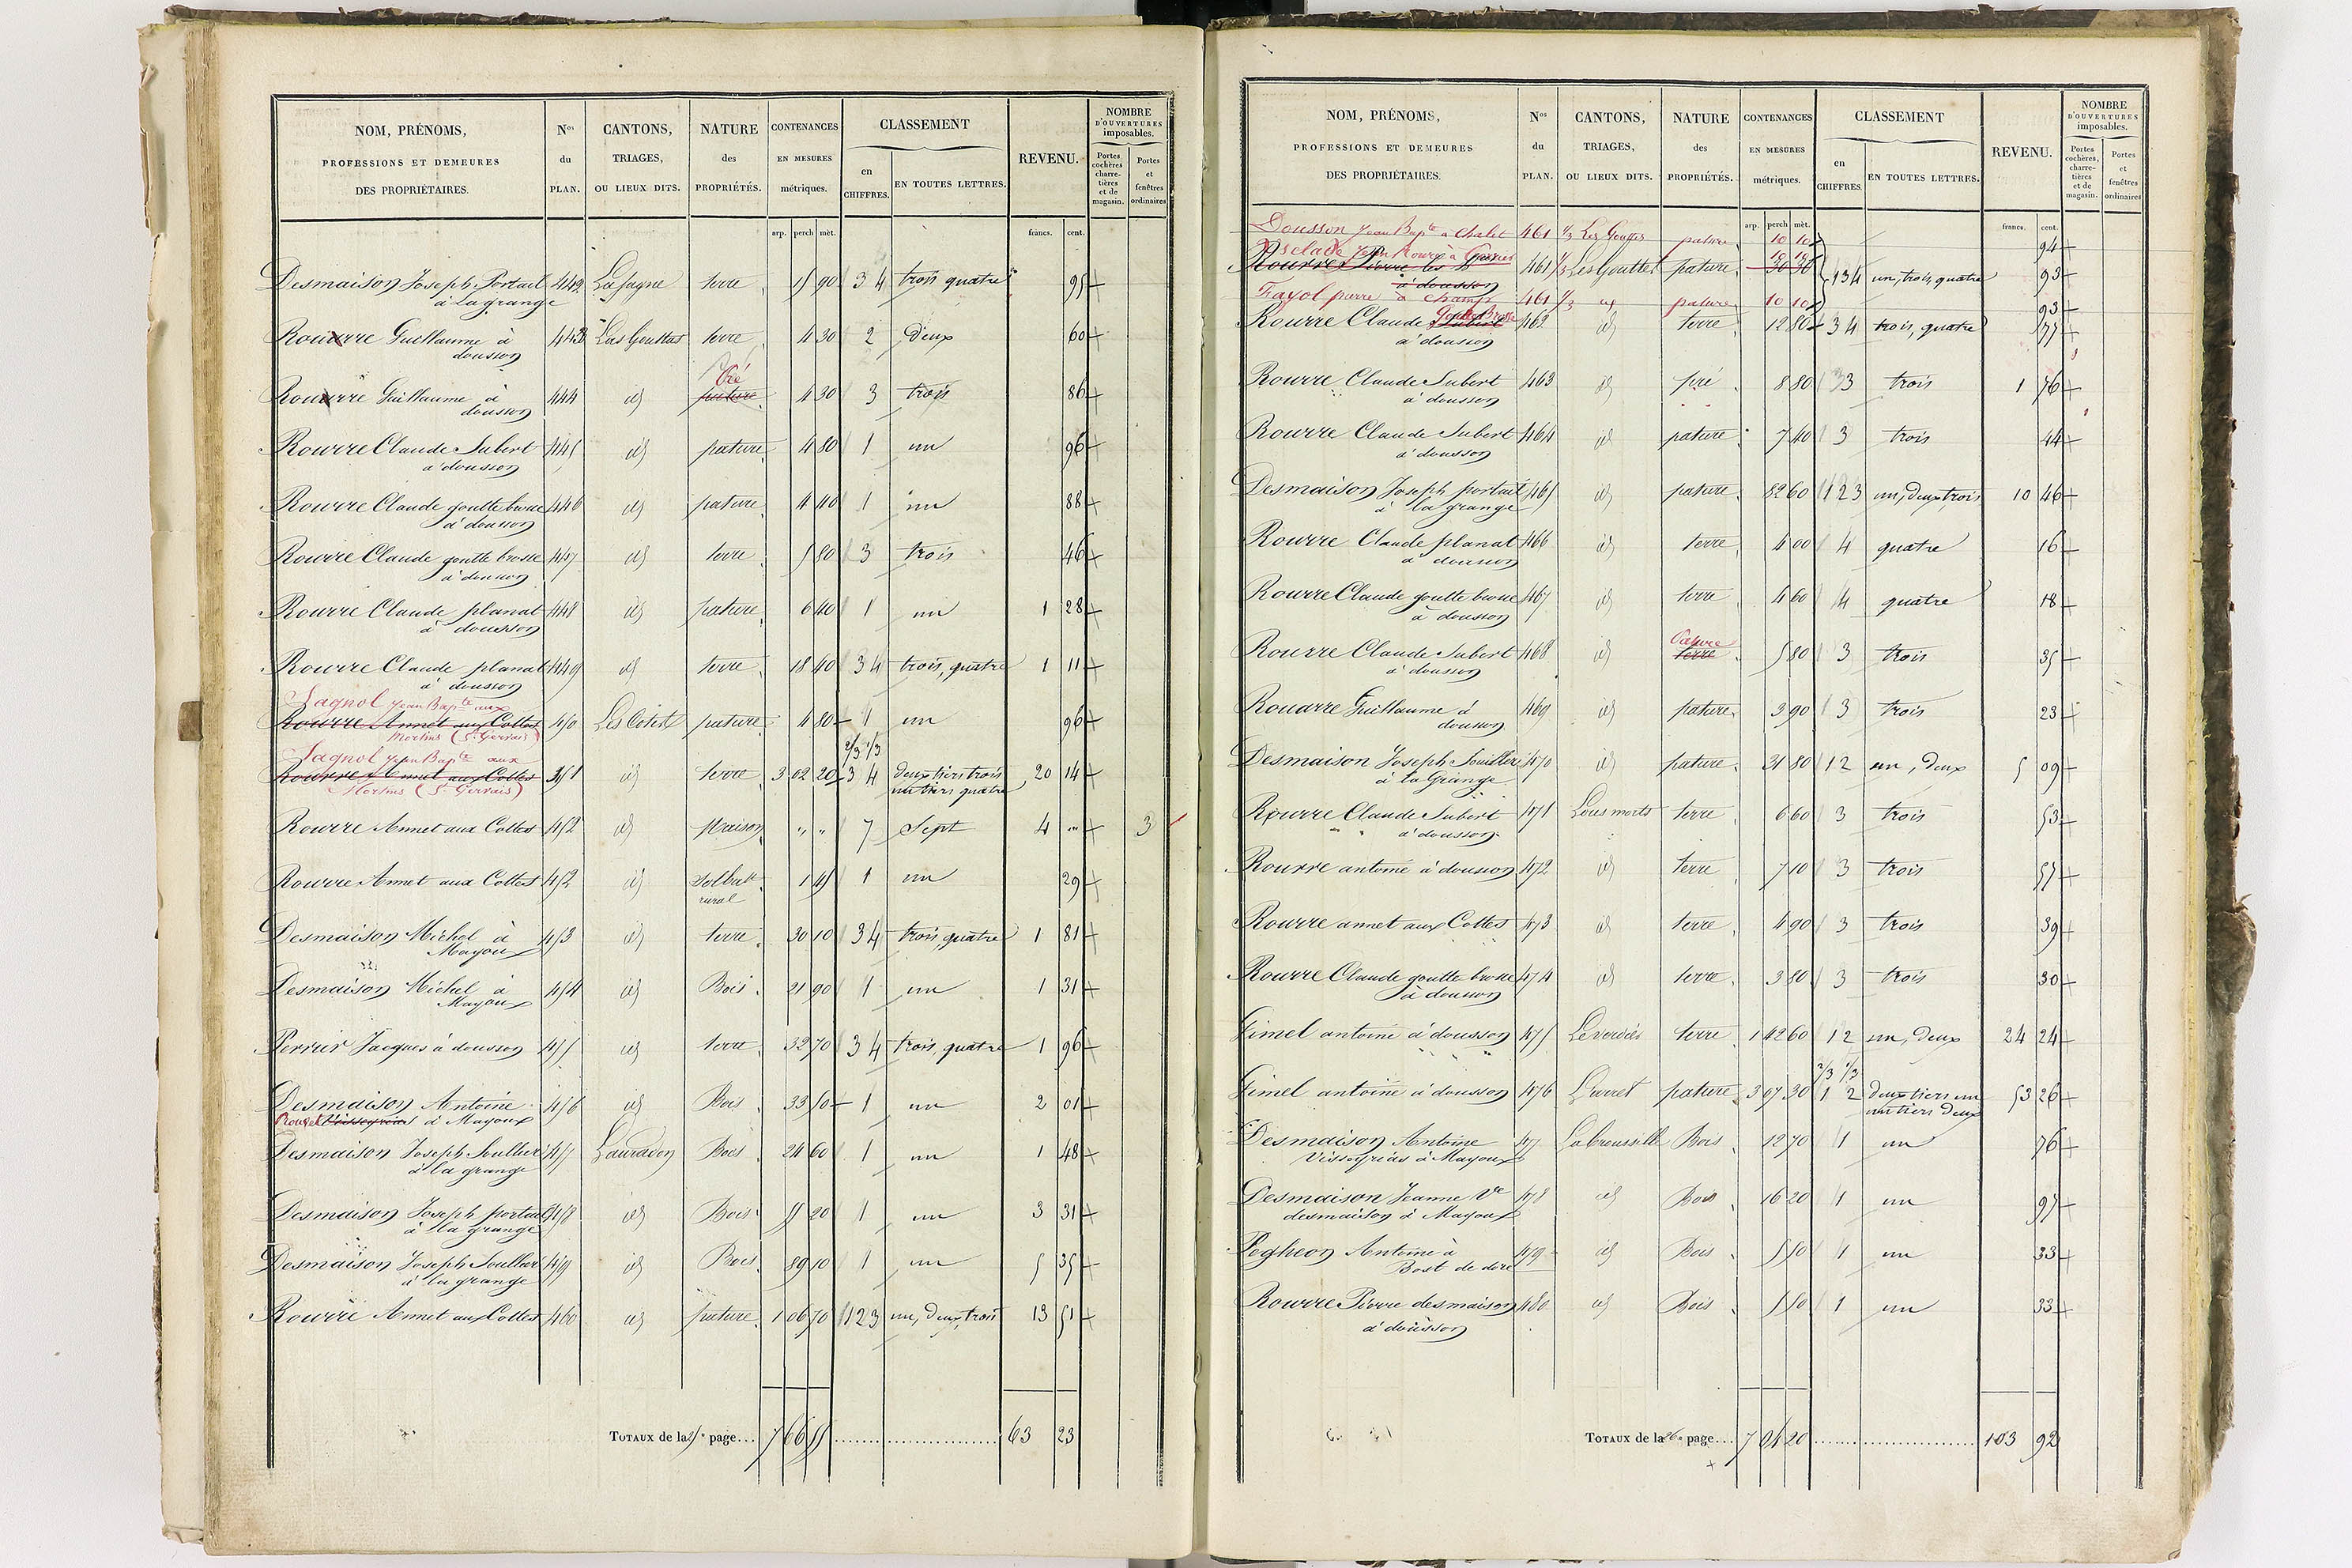 NOM, PRÉNOMS, PROFESSIONS ET DEMEURES DES PROPRIÉTAIRES. | Nos du PLAN. | CANTONS, TRIAGES, OU LIEUX DITS. | NATURE des PROPRIÉTÉS. | CONTENANCES EN MESURES métriques. | CLASSEMENT en CHIFFRES. | EN TOUTES LETTRES. | REVENU. | NOMBRE D'OUVERTURES imposables. Portes cochères, charretières et de magasin. | Portes et fenêtres ordinaires
arp. perch mèt. francs. cent.
Desmaison Joseph Portail 442 Lafagne terre 15 90 3 4 trois quatre 95
à la grange
Rouarre Guillaume à 443 Las Gouttas terre 4 30 2 Deux 60
dousson
Pré
Rouarre Guillaume à 444 id pature 4 30 3 trois 86
dousson
Rourre Claude Subert 445 id pature 4 80 1 un 96
à dousson
Rourre Claude goutte brosse 446 id pature 4 40 1 un 88
à dousson
Rourre Claude goutte brosse 447 id terre 5 80 3 trois 46
à dousson
Rourre Claude planat 448 id pature 6 40 1 un 1 28
à dousson
Rourre Claude planat 449 id terre 18 40 3 4 trois, quatre 1 11
à dousson
Sagnol Jean Bapte aux
Rourre Annet aux Cottes 450 Les Cotest pature 4 80 1 un 96
Martins (St Gervais)
Sagnol Jean Bapte aux 2/3 1/3
Rourre Annet aux Cottes 351 id terre 3 02 20 3 4 deux tiers trois 20 14
Martins (St Gervais) un tiers quatre
Rourre Annet aux Cottes 452 id Maison " " 7 Sept 4 " 3
Rourre Annet aux Cottes 452 id Sol batt 1 45 1 un 29
rural
Desmaison Michel à 453 id terre 30 10 3 4 trois, quatre 1 81
Mayoux
Desmaison Michel à 454 id Bois 21 90 1 un 1 31
Mayoux
Perrier Jacques à dousson 455 id terre 32 70 3 4 trois, quatre 1 96
Desmaison Antoine 456 id Bois 33 50 1 un 2 01
Rouzel à Mayoux
Desmaison Joseph Soullier 457 Lauradon Bois 24 60 1 un 1 48
à la grange
Desmaison Joseph portail 458 id Bois 55 20 1 un 3 31
à la grange
Desmaison Joseph Soullier 459 id Bois 89 10 1 un 5 35
à la grange
Rourre Annet aux Cottes 460 id pature 1 06 70 1 2 3 un, Deux, trois 13 51
TOTAUX de la 25e page... 7 66 55 63 23
NOM, PRÉNOMS, PROFESSIONS ET DEMEURES DES PROPRIÉTAIRES. | Nos du PLAN. | CANTONS, TRIAGES, OU LIEUX DITS. | NATURE des PROPRIÉTÉS. | CONTENANCES EN MESURES métriques. | CLASSEMENT en CHIFFRES. | EN TOUTES LETTRES. | REVENU. | NOMBRE D'OUVERTURES imposables. Portes cochères, charretières et de magasin. | Portes et fenêtres ordinaires
arp. perch mèt. francs. cent.
Dousson Jean Bapte a Chalet 461 1/3 Les Gouttes pature 10 10 94
10 10
Rourre Pierre 461 1/3 Les Gouttes pature 30 30 1 3 4 un, trois, quatre 93
à dousson
Fayol pierre à Champ 461 1/3 id pature 10 10 93
Goutte Brosse
Rourre Claude Subert 462 id terre 12 80 3 4 trois, quatre 77
à dousson
Rourre Claude Subert 463 id pré 8 80 3 trois 1 76
à dousson
Rourre Claude Subert 464 id pature 7 40 3 trois 44
à dousson
Desmaison Joseph portail 465 id pature 82 60 1 2 3 un, deux, trois 10 46
à la grange
Rourre Claude planat 466 id terre 4 00 4 quatre 16
à dousson
Rourre Claude goutte brosse 467 id terre 4 60 4 quatre 18
à dousson
Pature
Rourre Claude Subert 468 id terre 5 80 3 trois 35
à dousson
Rouarre Guillaume à 469 id pature 3 90 3 trois 23
dousson
Desmaison Joseph Souillier 470 id pature 31 80 1 2 un, deux 5 09
à la Grange
Rourre Claude Subert 471 Lous morts terre 6 60 3 trois 53
à dousson
Rourre antoine à dousson 472 id terre 7 10 3 trois 57
Rourre annet aux Cottes 473 id terre 4 90 3 trois 39
Rourre Claude goutte brosse 474 id terre 3 80 3 trois 30
à dousson
Gimel antoine à dousson 475 Leverdier terre 1 42 60 1 2 un, deux 24 24
2/3 1/3
Gimel antoine à dousson 476 pature 3 07 30 1 2 deux tiers un 53 26
un tiers deux
Desmaison Antoine 477 Labroussill Bois 12 70 1 un 76
Visseyrias à Mayoux
Desmaison Jeanne Ve 478 id Bois 16 20 1 un 97
desmaison à Mayoux
Pegheon Antoine à 479 id Bois 5 50 1 un 33
Bost de dore
Rourre Pierre desmaison 480 id Bois 5 50 1 un 33
à dousson
TOTAUX de la 26e page... 7 04 20 103 92